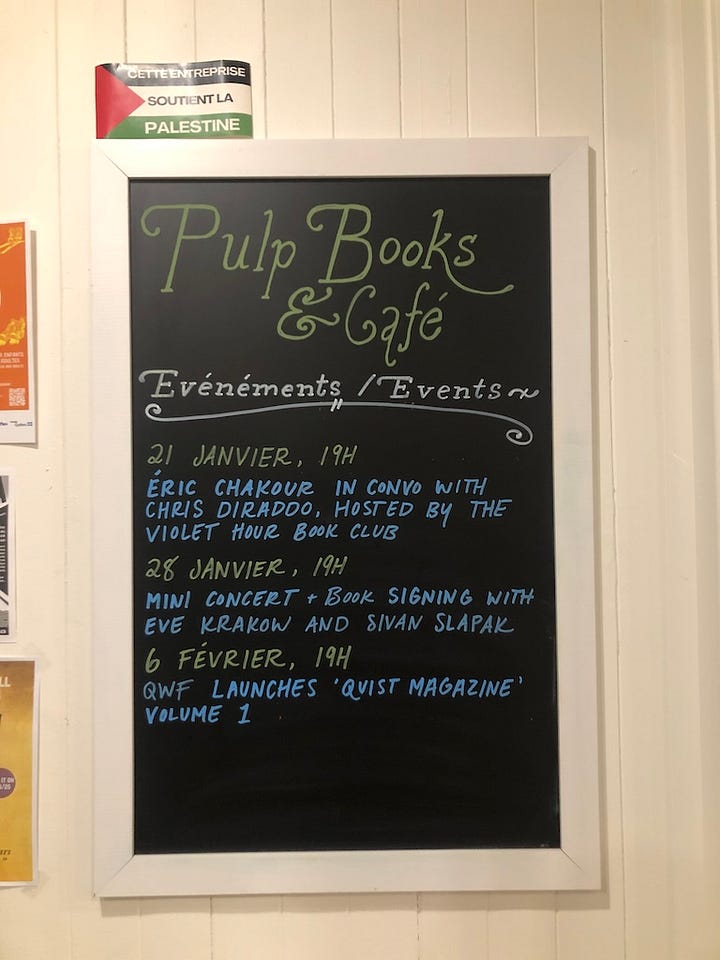 CETTE ENTREPRISE
SOUTIENT LA
PALESTINE
Pulp Books
& Café
Evénéments / Events
21 JANVIER, 19H
ÉRIC CHAKOUR IN CONVO WITH
CHRIS DIRADDO, HOSTED BY THE
VIOLET HOUR BOOK CLUB
28 JANVIER, 19H
MINI CONCERT + BOOK SIGNING WITH
EVE KRAKOW AND SIVAN SLAPAK
6 FÉVRIER, 19H
QWF LAUNCHES 'QUIST MAGAZINE'
VOLUME 1